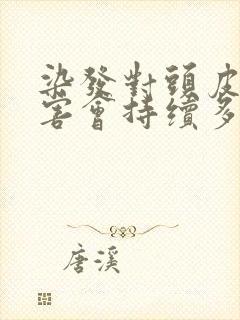 染發對頭皮
害會持續多
唐溪